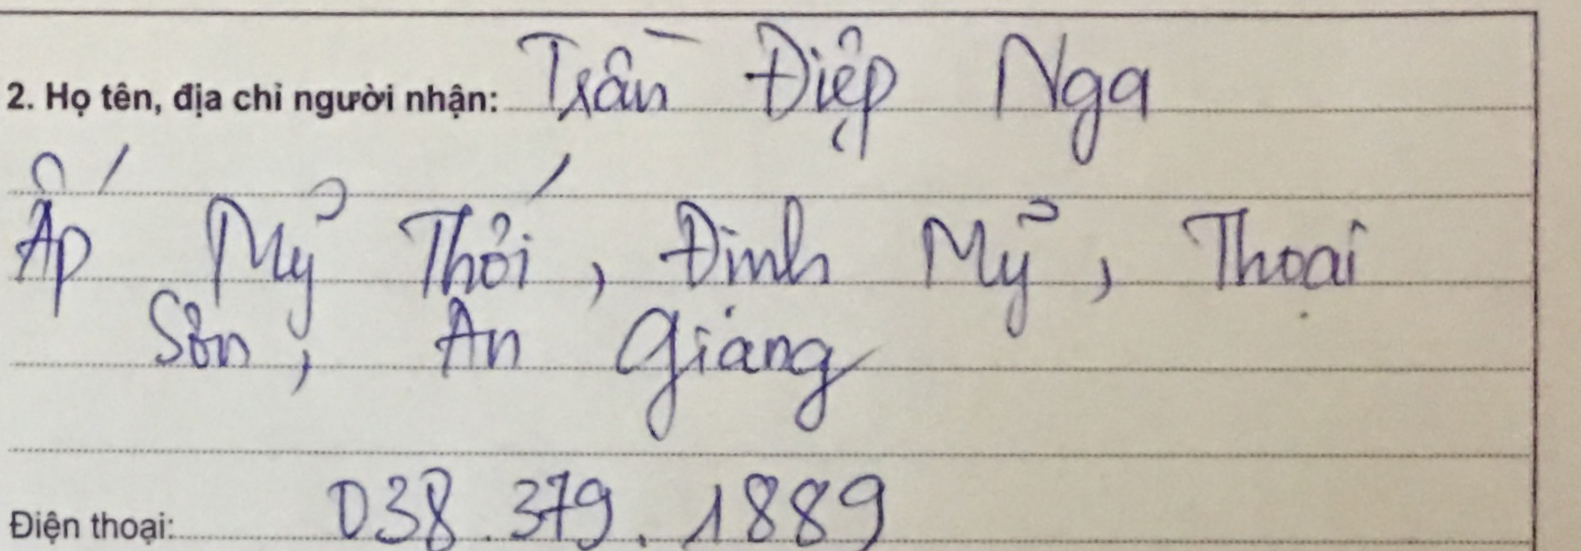 2. Họ tên, địa chỉ người nhận: Trần Điệp Nga
Ấp Mỹ Thới, Định Mỹ, Thoại
Sơn, An Giang
Điện thoại: 038.379.1889